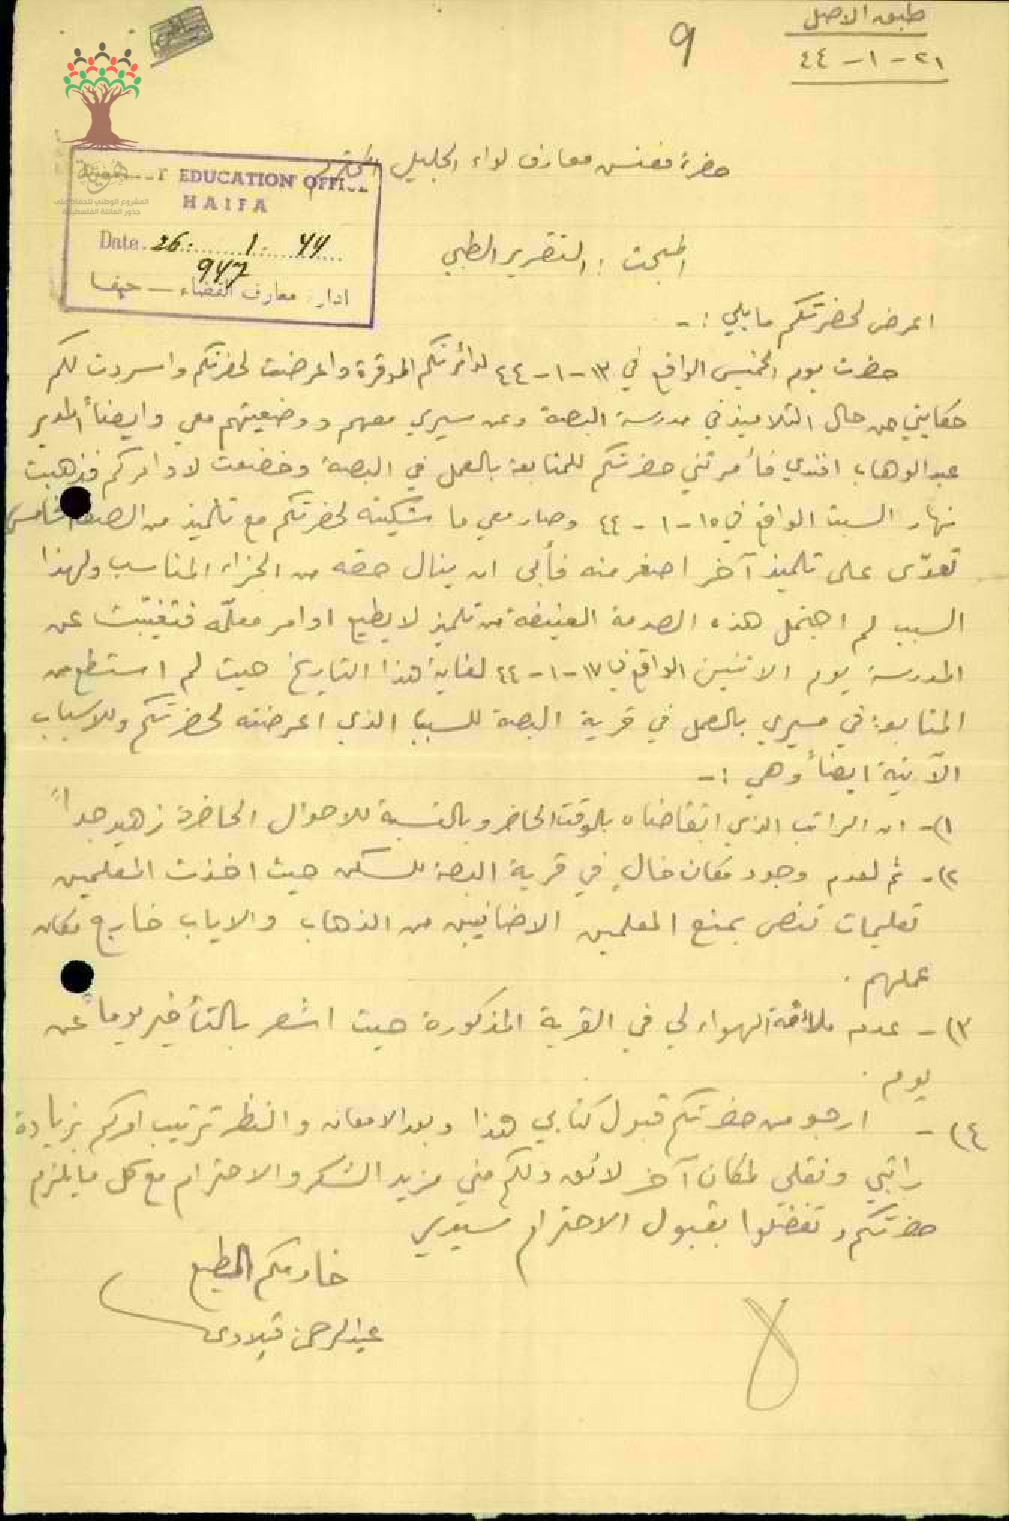 طبق الاصل
٢١-١-٤٤
٩
حضرة مفتش معارف لواء الجليل المحترم
EDUCATION OFFICE
HAIFA
Date 26. 1. 44
947
ادارة معارف القضاء — حيفا
هوية
المشروع الوطني للحفاظ على
جذور العائلة الفلسطينية
المبحث : التقرير الطبي
اعرض لحضرتكم ما يلي :-
حضرت يوم الخميس الواقع في ١٣-١-٤٤ لدائرتكم الموقرة واعرضت لحضرتكم واسردت لكم
حكايتي عن حال التلاميذ في مدرسة البصة وعن سيري معهم ووضعيتهم معي وايضاً المدير
عبد الوهاب افندي فأمرتني حضرتكم للمتابعة بالعمل في البصة وخضعت لاوامركم فذهبت
نهار السبت الواقع في ١٥-١-٤٤ وصار معي ما شكيته لحضرتكم مع تلميذ من الصف الخامس
تعدّى على تلميذ آخر اصغر منه فأبى ان ينال حقه من الجزاء المناسب ولهذا
السبب لم احتمل هذه الصدمة العنيفة من تلميذ لا يطيع اوامر معلمه فتغيّبت عن
المدرسة يوم الاثنين الواقع في ١٧-١-٤٤ لغاية هذا التاريخ حيث لم استطع من
المتابعة في مسيري بالعمل في قرية البصة للسبب الذي اعرضته لحضرتكم وللاسباب
الآتية ايضاً وهي :-
١)- ان الراتب الذي اتقاضاه بالوقت الحاضر وبالنسبة للاحوال الحاضرة زهيد جداً
٢)- ثم لعدم وجود مكان خالٍ في قرية البصة للسكن حيث اخذت المعلمين
تعليمات تنص بمنع المعلمين الاضافيين من الذهاب والاياب خارج مكان
عملهم .
٣)- عدم ملائمة الهواء لي في القرية المذكورة حيث اشعر بالتأخير يوماً عن
يوم .
٤)- ارجو من حضرتكم قبول كتابي هذا وبعد الامعان والنظر ترتيب امركم بزيادة
راتبي ونقلي لمكان آخر لائق ولكم مني مزيد الشكر والاحترام مع كل ما يلزم
حضرتكم وتفضلوا بقبول الاحترام سيدي
خادمكم المطيع
عبد الرحمن
٨